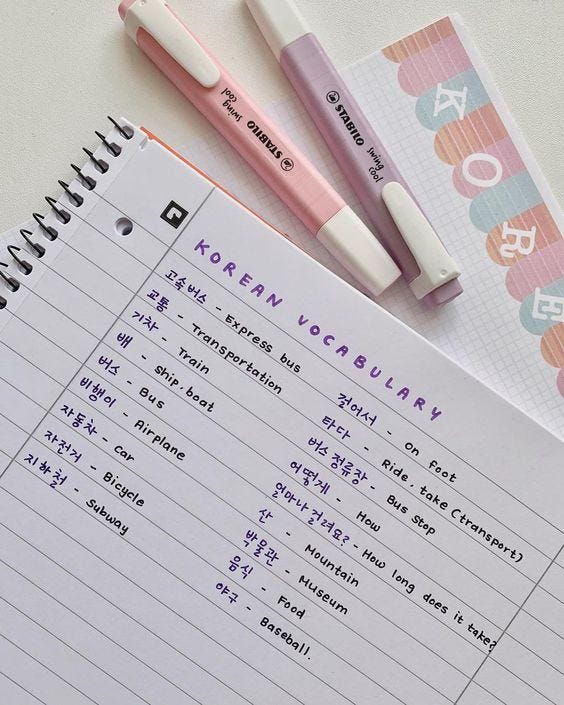 STABILO
swing cool
STABILO
swing cool
KORE
KOREAN VOCABULARY
고속버스 - Express bus
교통 - Transportation
기차 - Train
배 - ship, boat
버스 - Bus
비행이 - Airplane
자동차 - Car
자전거 - Bicycle
지하철 - Subway
걸어서 - on foot
타다 - Ride, take (transport)
버스 정류장 - Bus Stop
어떻게 - How
얼마나 걸려요? - How long does it take?
산 - Mountain
박물관 - Museum
음식 - Food
야구 - Baseball.